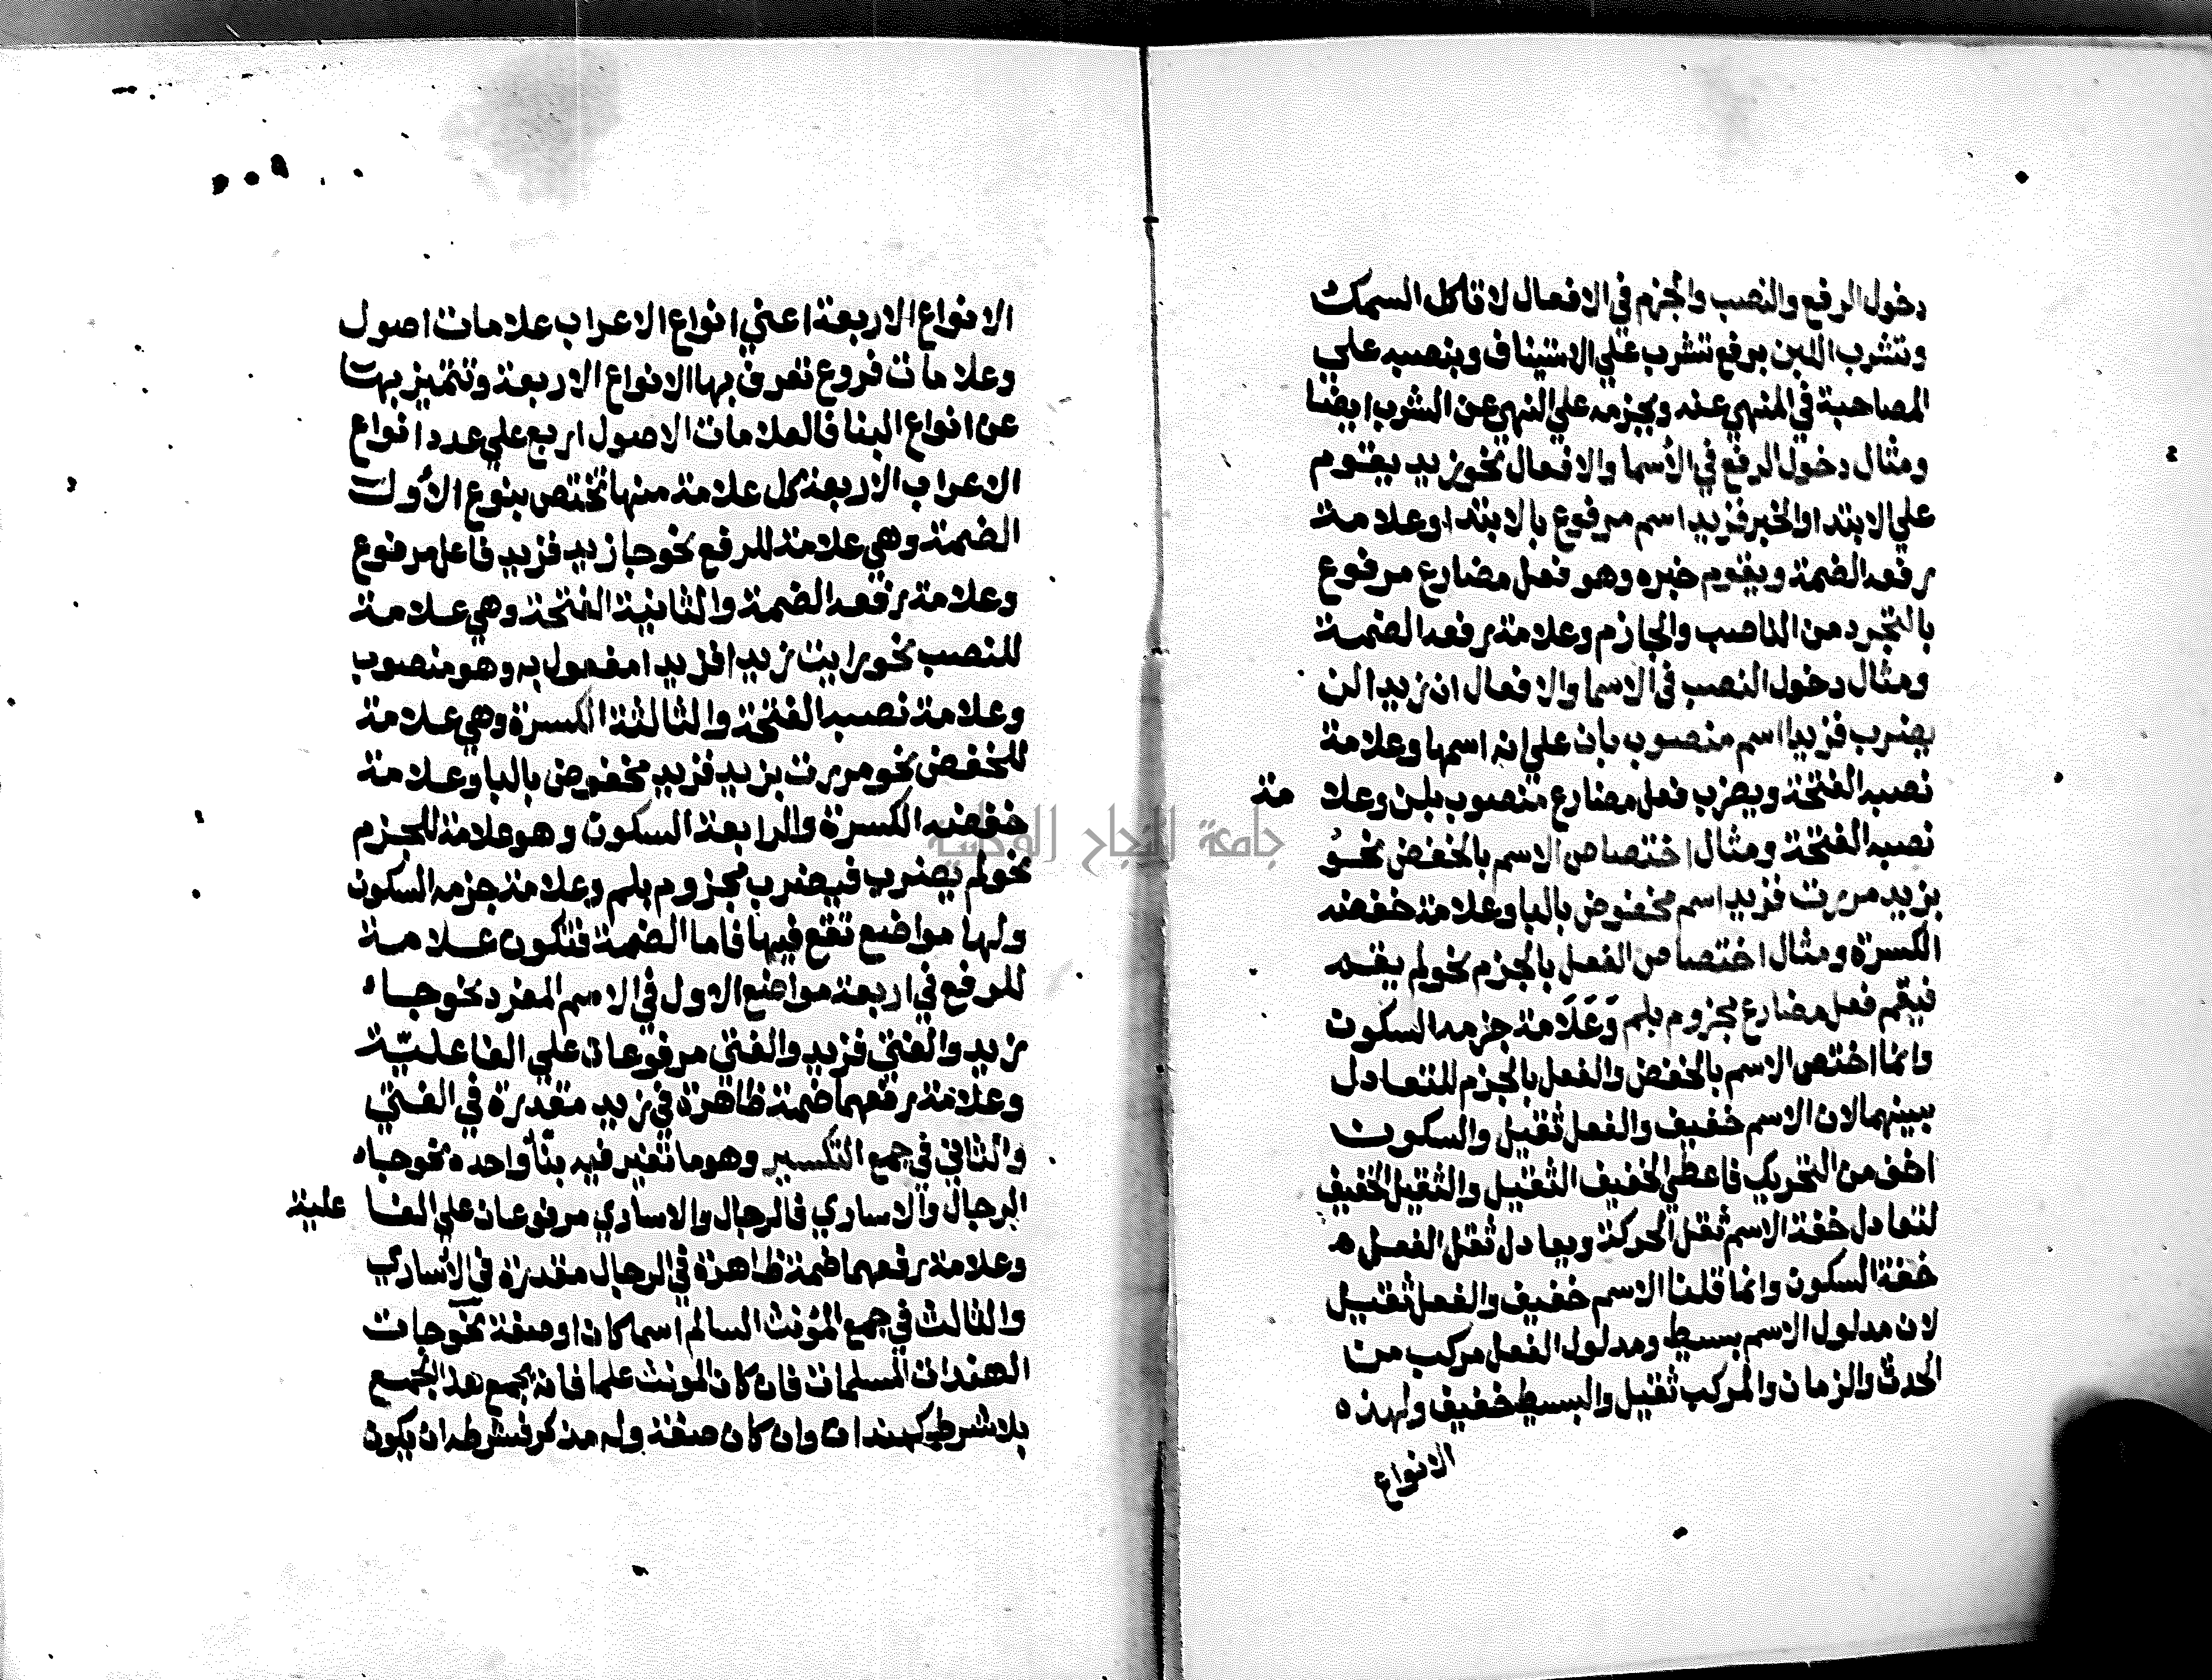 دخول الرفع والنصب والجزم في الافعال لا تاكل السمك
وتشرب اللبن برفع تشرب علي الاستيناف وبنصبه علي
المصاحبة في المنهي عنه وبجزمه علي النهي عن الشرب ايضا
ومثال دخول الرفع في الأسما والافعال نحو زيد يقوم
علي الابتدا والخبر فزيد اسم مرفوع بالابتدا وعلامة
رفعه الضمة ويقوم خبره وهو فعل مضارع مرفوع
بالتجرد من الناصب والجازم وعلامة رفعه الضمة
ومثال دخول النصب في الاسما والافعال ان زيدا لن
يضرب فزيدا اسم منصوب بان علي انه اسمها وعلامة
نصبه الفتحة ويضرب فعل مضارع منصوب بلن وعلا مة
نصبه الفتحة ومثال اختصاص الاسم بالخفض نحو
بزيد مررت فزيد اسم مخفوض بالبا وعلامة خفضه
الكسرة ومثال اختصاص الفعل بالجزم نحو لم يقم
فيقم فعل مضارع مجزوم بلم وَعَلَامة جزمه السكون
وانما اختص الاسم بالخفض والفعل بالجزم للتعادل
بينهما لان الاسم خفيف والفعل ثقيل والسكون
اخف من التحريك فاعطي الخفيف الثقيل والثقيل الخفيف
لتعادل خفة الاسم ثقل الحركة ويعادل ثقل الفعل ه
خفة السكون وانما قلنا الاسم خفيف والفعل ثقيل
لان مدلول الاسم بسيط ومدلول الفعل مركب من
الحدث والزمان والمركب ثقيل والبسيط خفيف ولهذه
الانواع
الانواع الاربعة اعني انواع الاعراب علامات اصول
وعلامات فروع تعرف بها الانواع الاربعة وتتميز بها
عن انواع البنا فالعلامات الاصول اربع علي عدد انواع
الاعراب الاربعة كل علامة منها تختص بنوع الأول
الضمة وهي علامة للرفع نحو جا زيد فزيد فاعل مرفوع
وعلامة رفعه الضمة والثانية الفتحة وهي علامة
للنصب نحو رايت زيدا فزيدا مفعول به وهو منصوب
وعلامة نصبه الفتحة والثالثة الكسرة وهي علامة
للخفض نحو مررت بزيد فزيد مخفوض بالبا وعلامة
خفضه الكسرة والرابعة السكون وهو علامة للجزم
نحو لم يضرب فيضرب مجزوم بلم وعلامة جزمه السكون
ولها مواضع تقع فيها فاما الضمة فتكون علامة
للرفع في اربعة مواضع الاول في الاسم المفرد نحو جاء
زيد والفتي فزيد والفتي مرفوعان علي الفاعليّة
وعلامة رفعهما ضمة ظاهرة في زيد مقدرة في الفتي
والثاني في جمع التكسير وهو ما تغير فيه بنأ واحده نحو جاء
الرجال والاساري فالرجال والاساري مرفوعان علي الفا علية
وعلامة رفعهما ضمة ظاهرة في الرجال مقدرة في الأساري
والثالث في جمع المؤنث السالم اسما كان او صفة نحو جات
الهندات المسلمات فان كان المونث علما فانه يجمع هذا الجمع
بلا شرط كهندات وان كان صفة وله مذكر فشرطه ان يكون
جامعة النجاح الوطنية